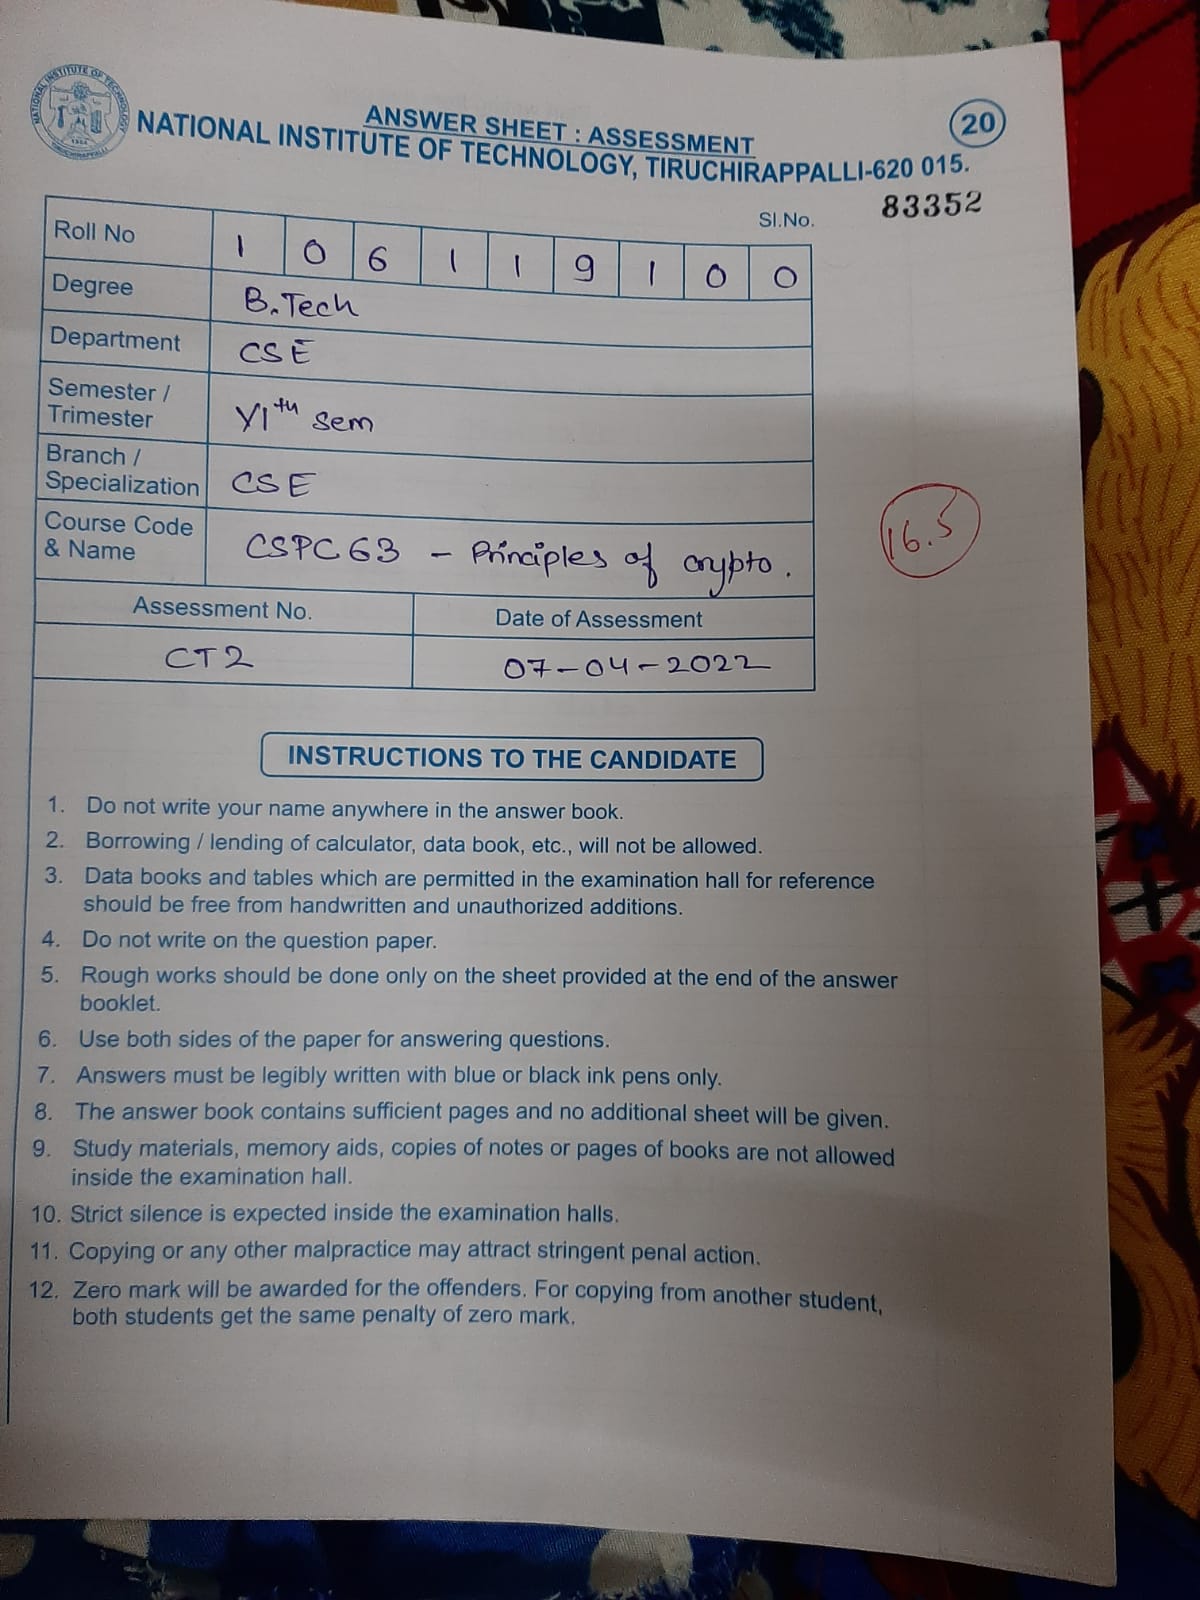 NATIONAL INSTITUTE OF TECHNOLOGY
1964
TIRUCHIRAPPALLI
ANSWER SHEET : ASSESSMENT
20
NATIONAL INSTITUTE OF TECHNOLOGY, TIRUCHIRAPPALLI-620 015.
Sl.No. 83352
Roll No 1 0 6 1 1 9 1 0 0
Degree B.Tech
Department CSE
Semester /
Trimester VIth sem
Branch /
Specialization CSE
16.5
Course Code
& Name CSPC63 - Principles of crypto.
Assessment No. Date of Assessment
CT2 07-04-2022
INSTRUCTIONS TO THE CANDIDATE
1. Do not write your name anywhere in the answer book.
2. Borrowing / lending of calculator, data book, etc., will not be allowed.
3. Data books and tables which are permitted in the examination hall for reference
should be free from handwritten and unauthorized additions.
4. Do not write on the question paper.
5. Rough works should be done only on the sheet provided at the end of the answer
booklet.
6. Use both sides of the paper for answering questions.
7. Answers must be legibly written with blue or black ink pens only.
8. The answer book contains sufficient pages and no additional sheet will be given.
9. Study materials, memory aids, copies of notes or pages of books are not allowed
inside the examination hall.
10. Strict silence is expected inside the examination halls.
11. Copying or any other malpractice may attract stringent penal action.
12. Zero mark will be awarded for the offenders. For copying from another student,
both students get the same penalty of zero mark.